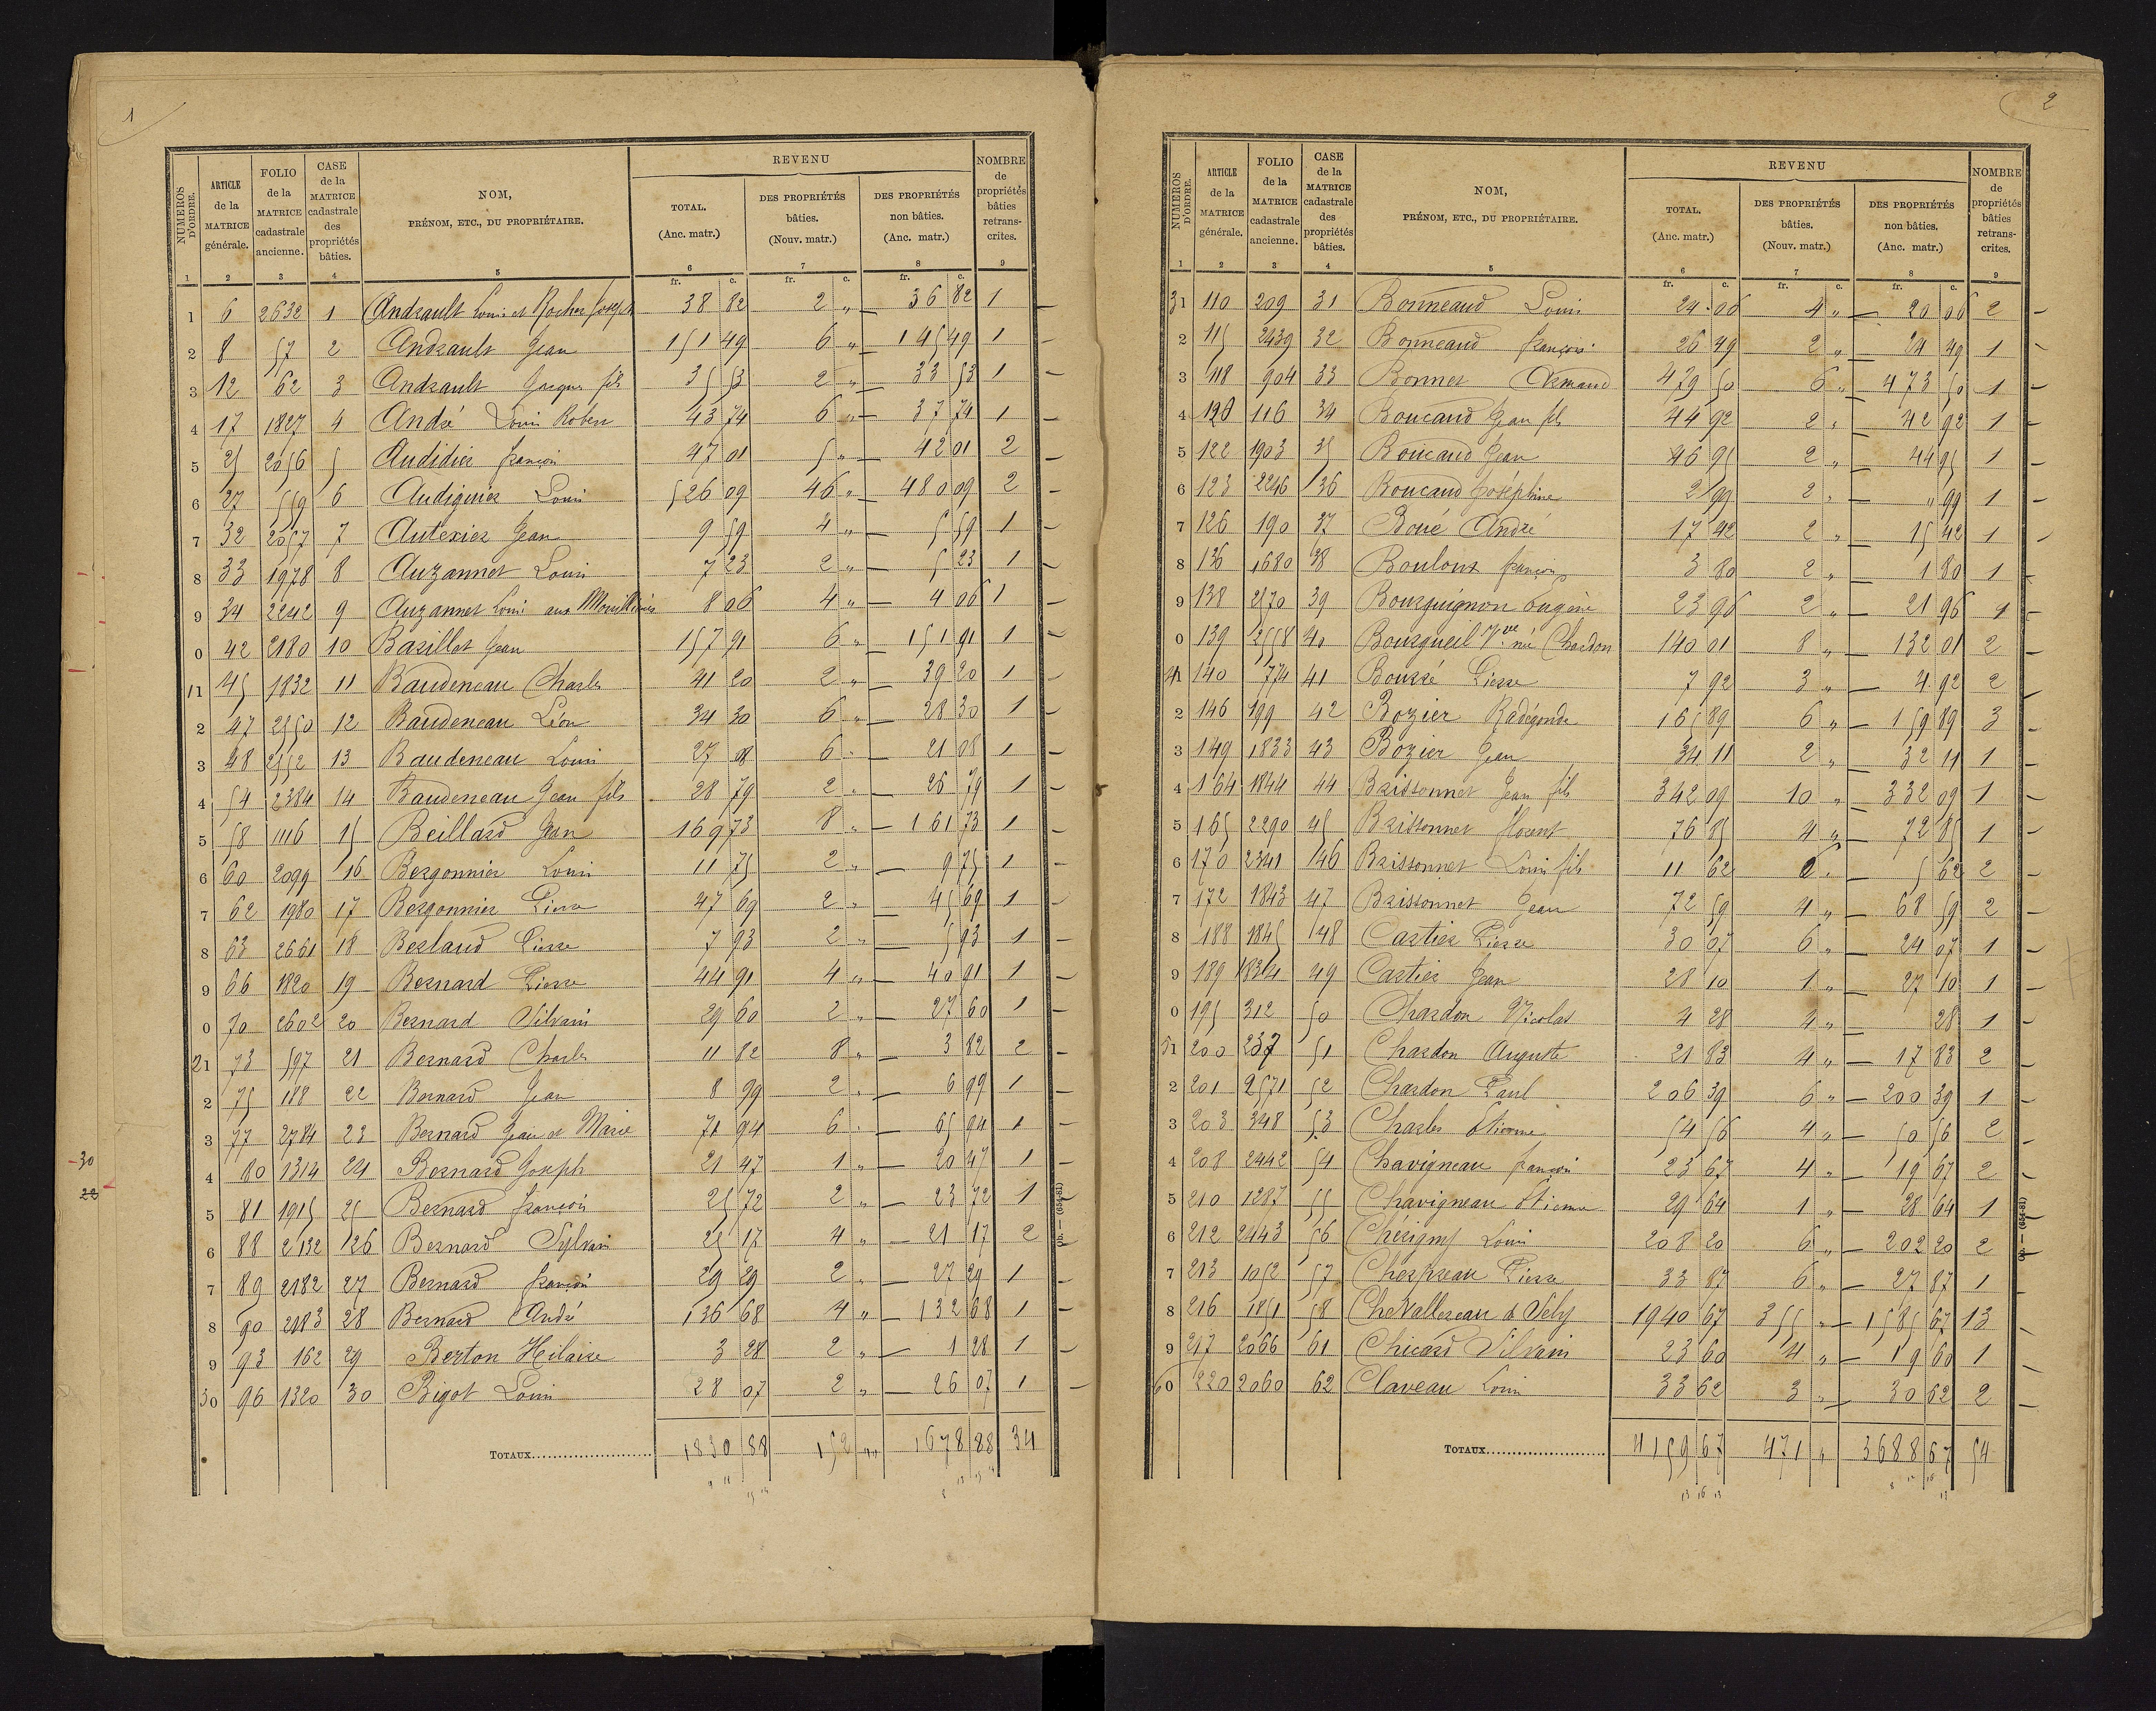 1
NUMÉROS D'ORDRE.
ARTICLE de la MATRICE générale.
FOLIO de la MATRICE cadastrale ancienne.
CASE de la MATRICE cadastrale des propriétés bâties.
NOM, PRÉNOM, ETC., DU PROPRIÉTAIRE.
REVENU
TOTAL. (Anc. matr.)
DES PROPRIÉTÉS bâties. (Nouv. matr.)
DES PROPRIÉTÉS non bâties. (Anc. matr.)
NOMBRE de propriétés bâties retranscrites.
1 2 3 4 5 6 7 8 9
fr. c. fr. c. fr. c.
1 6 2632 1 Andrault Louis et Rocher Joseph 38 82 2 „ 36 82 1
2 8 57 2 Andrault Jean 151 49 6 „ 145 49 1
3 12 62 3 Andrault Jacques fils 35 53 2 „ 33 53 1
4 17 1827 4 André Louis Robert 43 74 6 „ 37 74 1
5 25 2056 5 Audidier françois 47 01 5 „ 42 01 2
6 27 559 6 Audiguier Louis 526 09 46 „ 480 09 2
7 32 2057 7 Autexier Jean 9 59 4 „ 5 59 1
8 33 1978 8 Auzannet Louis 7 23 2 „ 5 23 1
9 34 2242 9 Auzannet Louis aux 8 06 4 „ 4 06 1
0 42 2180 10 Barillot Jean 157 91 6 „ 151 91 1
11 45 1832 11 Baudeneau Charles 41 20 2 „ 39 20 1
2 47 2550 12 Baudeneau Léon 34 30 6 „ 28 30 1
3 48 2552 13 Baudeneau Louis 27 08 6 „ 21 08 1
4 54 2384 14 Baudeneau Jean fils 28 79 2 „ 26 79 1
5 58 1116 15 Beillard Jean 169 73 8 „ 161 73 1
6 60 2099 16 Bergonnier Louis 11 75 2 „ 9 75 1
7 62 1980 17 Bergonnier Pierre 47 69 2 „ 45 69 1
8 63 2661 18 Berlaud Pierre 7 93 2 „ 5 93 1
9 66 1820 19 Bernard Pierre 44 91 4 „ 40 91 1
0 70 2602 20 Bernard Silvain 29 60 2 „ 27 60 1
21 73 597 21 Bernard Charles 11 82 8 „ 3 82 2
2 75 188 22 Bernard Jean 8 99 2 „ 6 99 1
3 77 2784 23 Bernard Jean et Marie 71 94 6 „ 65 94 1
4 80 1314 24 Bernard Joseph 21 47 1 „ 20 47 1
5 81 1915 25 Bernard françois 25 72 2 „ 23 72 1
6 88 2132 26 Bernard Sylvain 25 17 4 „ 21 17 2
7 89 2182 27 Bernard françois 29 29 2 „ 27 29 1
8 90 2183 28 Bernard André 136 68 4 „ 132 68 1
9 93 162 29 Berton Hilaire 3 28 2 „ 1 28 1
30 96 1320 30 Bigot Louis 28 07 2 „ 26 07 1
TOTAUX 1830 88 152 „„ 1678 88 34
30
22
2
NUMÉROS D'ORDRE.
ARTICLE de la MATRICE générale.
FOLIO de la MATRICE cadastrale ancienne.
CASE de la MATRICE cadastrale des propriétés bâties.
NOM, PRÉNOM, ETC., DU PROPRIÉTAIRE.
REVENU
TOTAL. (Anc. matr.)
DES PROPRIÉTÉS bâties. (Nouv. matr.)
DES PROPRIÉTÉS non bâties. (Anc. matr.)
NOMBRE de propriétés bâties retranscrites.
1 2 3 4 5 6 7 8 9
fr. c. fr. c. fr. c.
31 110 209 31 Bonneaud Louis 24 06 4 „ 20 06 2
2 115 2439 32 Bonneaud françois 26 49 2 „ 24 49 1
3 118 904 33 Bonnet Armand 479 50 6 „ 473 50 1
4 120 116 34 Boucaud Jean fils 44 92 2 „ 42 92 1
5 122 1903 35 Boucaud Jean 46 95 2 „ 44 95 1
6 123 2246 36 Boucaud Joséphine 2 99 2 „ „ 99 1
7 126 190 37 Boué André 17 42 2 „ 15 42 1
8 136 1680 38 Bouloux françois 3 80 2 „ 1 80 1
9 138 2570 39 Bourguignon Eugène 23 96 2 „ 21 96 1
0 139 2558 40 Bourgueil Vve née Chardon 140 01 8 „ 132 01 2
41 140 774 41 Bourré Pierre 7 92 3 „ 4 92 2
2 146 199 42 Bozier Radégonde 165 89 6 „ 159 89 3
3 149 1833 43 Bozier Jean 34 11 2 „ 32 11 1
4 164 1844 44 Brissonnet Jean fils 342 09 10 „ 332 09 1
5 165 2290 45 Brissonnet florent 76 85 4 „ 72 85 1
6 170 2341 46 Brissonnet Louis fils 11 62 6 „ 5 62 2
7 172 1843 47 Brissonnet Jean 72 59 4 „ 68 59 2
8 188 1845 48 Cartier Pierre 30 07 6 „ 24 07 1
9 189 1834 49 Cartier Jean 28 10 1 „ 27 10 1
0 195 312 50 Chardon Nicolas 4 28 4 „ 28 1
51 200 237 51 Chardon Auguste 21 83 4 „ 17 83 2
2 201 2571 52 Chardon Paul 206 39 6 „ 200 39 1
3 203 348 53 Charles Etienne 54 56 4 „ 50 56 2
4 208 2442 54 Chavigneau françois 23 67 4 „ 19 67 2
5 210 1287 55 Chavigneau Etienne 29 64 1 „ 28 64 1
6 212 2443 56 Chérigny Louis 208 20 6 „ 202 20 2
7 213 1052 57 Cherpreau Pierre 33 87 6 „ 27 87 1
8 216 1851 58 Chevallereau 1940 67 355 „ 1585 67 13
9 217 2066 61 Chicard Silvain 23 60 4 „ 19 60 1
60 220 2060 62 Claveau Louis 33 62 3 „ 30 62 2
TOTAUX 4159 67 471 „ 3688 67 54